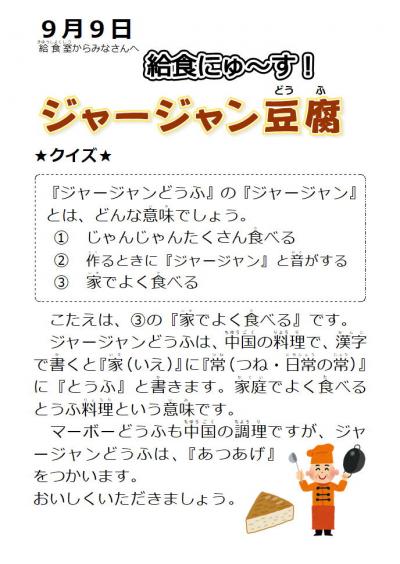 ９月９日
給食室からみなさんへ
給食にゅ～す！
ジャージャン豆腐
★クイズ★
『ジャージャンどうふ』の『ジャージャン』
とは、どんな意味でしょう。
①　じゃんじゃんたくさん食べる
②　作るときに『ジャージャン』と音がする
③　家でよく食べる
こたえは、③の『家でよく食べる』です。
ジャージャンどうふは、中国の料理で、漢字
で書くと『家（いえ）』に『常（つね・日常の常）』
に『とうふ』と書きます。家庭でよく食べる
とうふ料理という意味です。
マーボーどうふも中国の調理ですが、ジャ
ージャンどうふは、『あつあげ』
をつかいます。
おいしくいただきましょう。